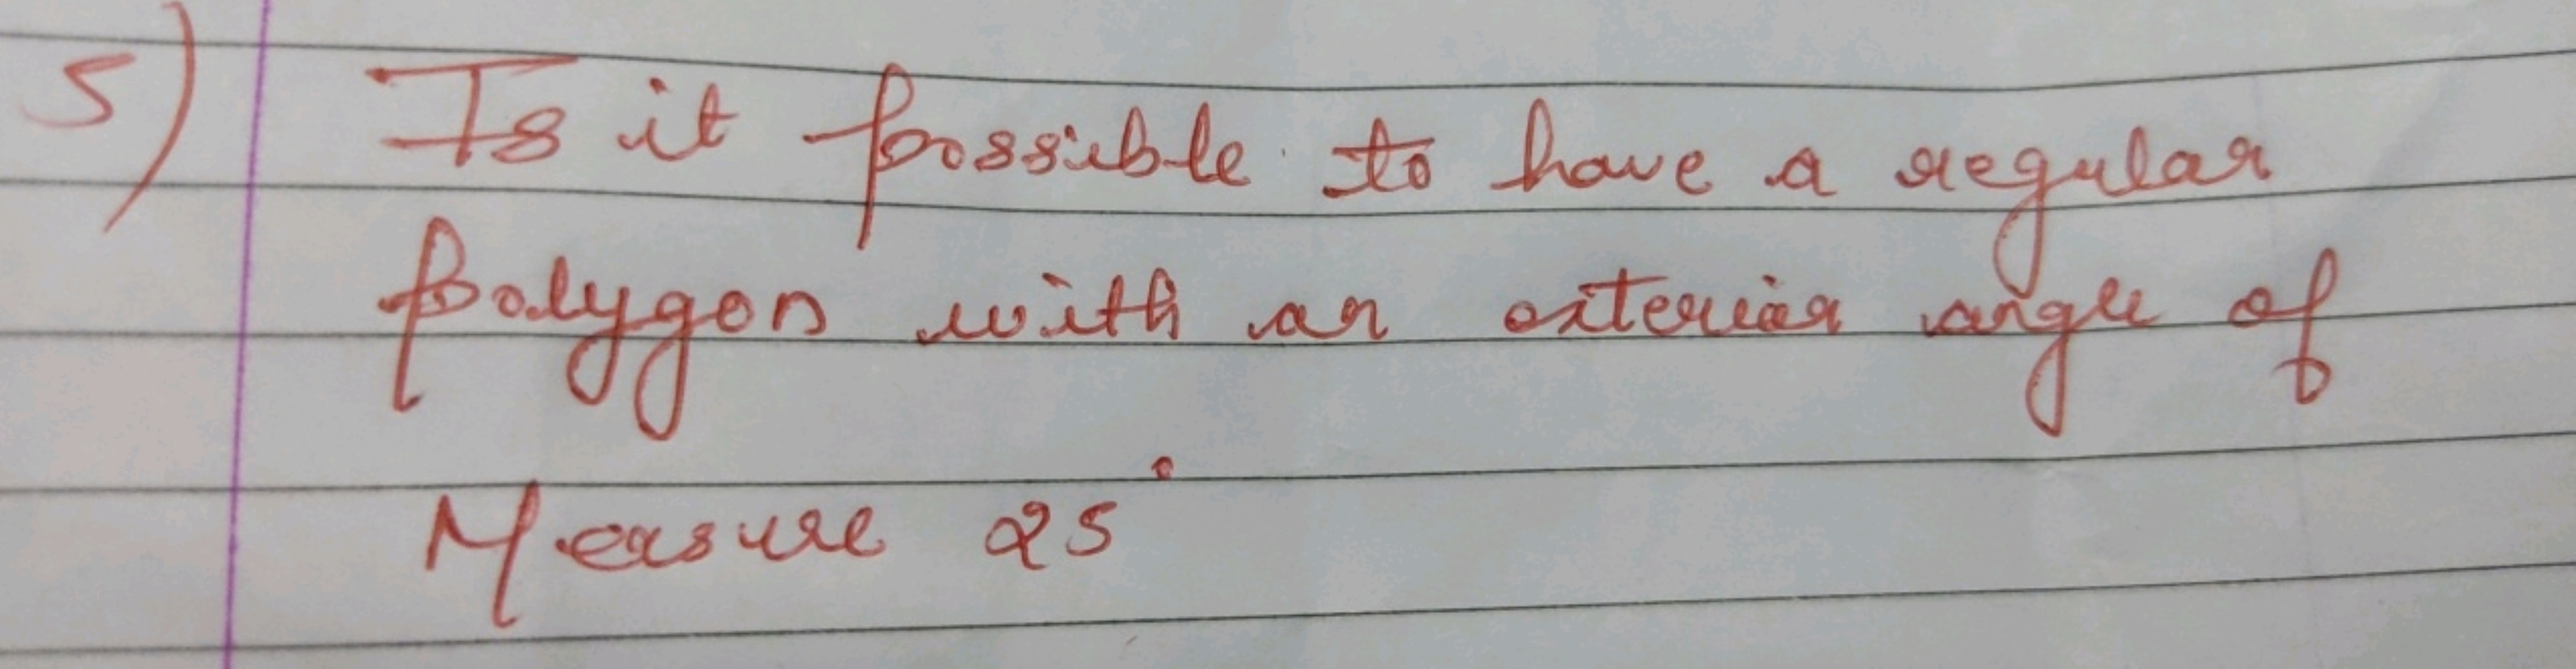 5) Is it possible to have a regular
polygon with an exterior angle of
Measure 25°